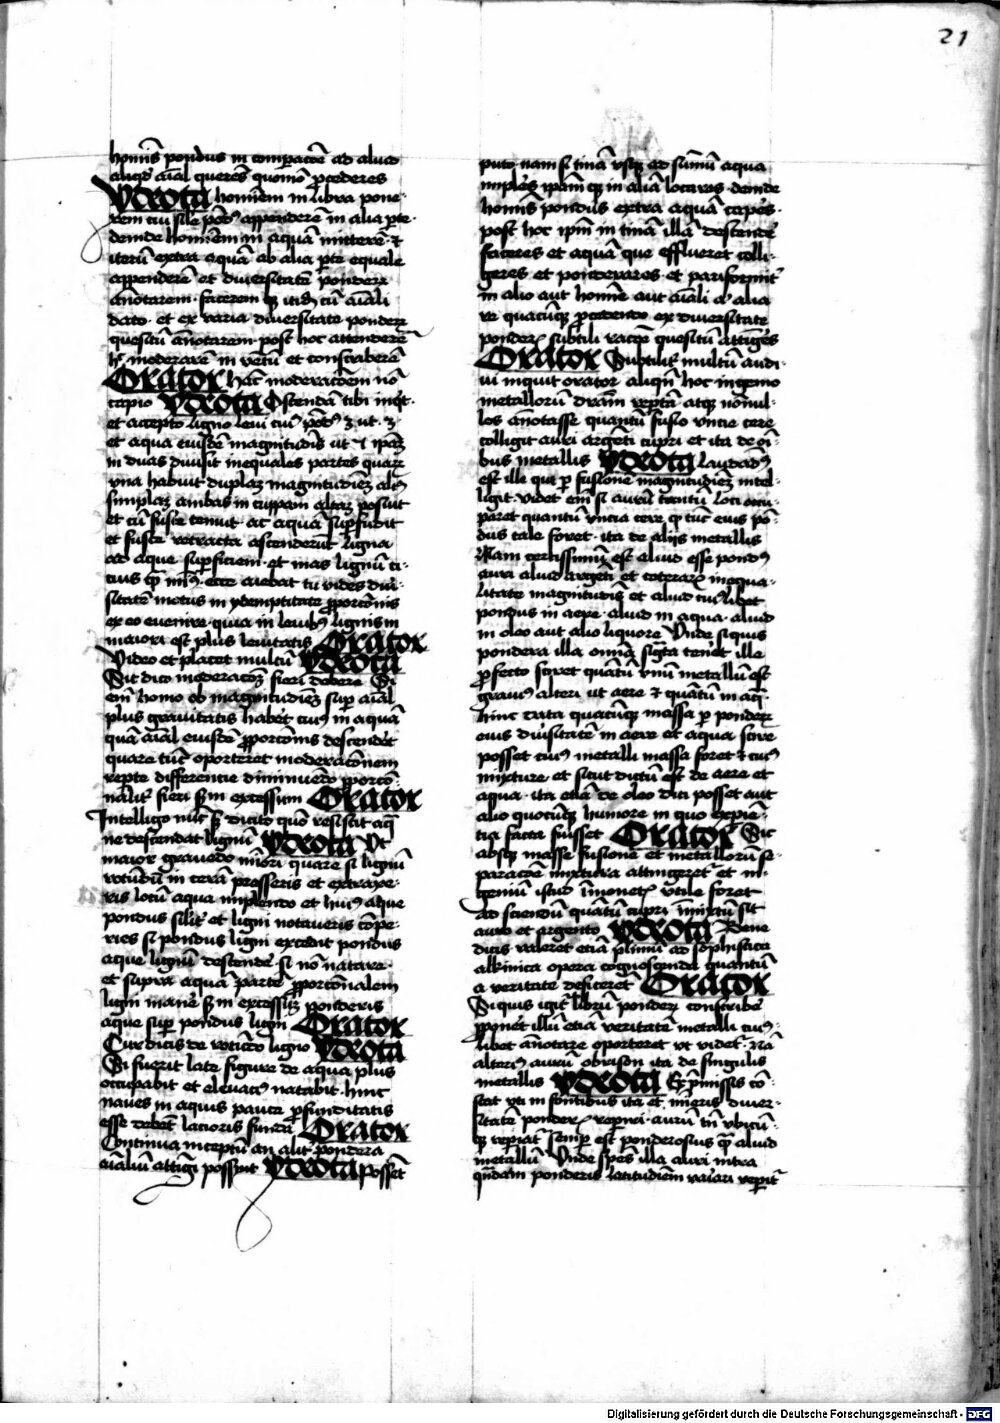 21
homīs pondus in compacōē ad aliud
aliqd' aīal queres quomō p̱cederes
ydiota hominem in libra pone⸗
rem cui sīle pōdꝰ appenderē in alia pte·
deinde hominem in aquā mitterē· ⁊
iterū extra aquā ab alia pte equale
appenderē et diuersitatē ponderꝝ
añotarem· facerem qꝫ itid' cū aīali
dato· et ex varia diuersitate ponderꝝ
quesitū añotarem· post hoc attenderē
Orator hāc moderacōem nō
capio ydiota Ostendā tibi inqt·
et accepto ligno leui cuiꝰ pōdꝰ
et aqua eiusdē magnitudīs ut
in duas diuisit inequales partes quaꝝ
vna habuit duplaꝫ magnitudīeꝫ alīa
simplaꝫ ambas in cuppam altaꝫ posuit
et cū fuste tenuit ac aquā supfudit
et fuste retracta ascenderūt ligna
ad aque supficiem· et maius lignū ci⸗
cius ꝙ minꝰ· ecce aiebat tu vides diū⸗
sitatē motus in ydemptitate ꝓporcōnis
ex eo euenire quia in leuibꝰ lignis in
maiori est plus leuitatis Orator
Video et placet multū ydiota
Sic dico moderacōeꝫ fieri debere Si
em̄ homo ob magnitudīeꝫ sup aīal
plus grauitatis haberet tunc in aquā
quā aīal eiusdē ꝓporcōnis descendet
quare tūc oporteret moderacōnem
repte differentie diminuēdo ꝓporcō⸗
nalit' fieri ẜm excessum Orator
Intelligo nūc ẜ dicito quō resistit aq̄
ne descendat lignū ydiota Vt
maior grauedo mīori quare si lignū
rotūdū in cerā presseris et extraxe⸗
ris locū aqua implendo et huiꝰ aque
pondus silit' et ligni notaueris cōpe⸗
ries si pondus ligni excedit pondus
aque lignū descende· si nō natare·
et supra aquā parte ꝓporcōnalem
ligni mane' ẜm excessuꝫ ponderis
aque sup pondus ligni Orator
Cur dicis de rotūdo ligno ydiota
Si fuerit late figure de aqua plus
occupabit et eleuatꝰ natabit· hinc
naues in aquis pauce ꝓfunditatis
esse debent lacioris fundi Orator
Continua inceptū an alit' pondera
aīaliū attīgi possint ydiota Possēt
puto nam si tinā vsqꝫ ad sūmū aqua
imples ipām qꝫ in aliā locares· deinde
homīs pondus extra aquā capes·
post hoc ipm in tinā illā descende'
faceres et aquā que efflueret colli⸗
geres et ponderares· et pariformit'
in alio aut homīe aut aīali
ue quacūqꝫ p̱cedendo ex diuersitate
ponderꝝ subtili racōe quesitū attinges
Orator Subtiliꝰ multū audi⸗
ui inquit orator aliqn̄ hoc ingenio
metallorū dr̄am reptā atqꝫ nōnul⸗
los añotasse quantū fusio vncie cere
colligit auri argēti cupri et ita de oī⸗
bus metallis ydiota Laudādꝰ
est ille qui p fusionē magnitudīeꝫ intel⸗
ligit videt em̄ si aurū tantū loci occu⸗
paret quantū vncia cere ꝙ tūc eius pō⸗
dus tale foret· ita de aliis metallis
Nam certissimū est aliud esse pondꝰ
auri aliud argēti et ceteraꝝ inequa⸗
litate magnitudīs et aliud cuiꝰlibet
pondus in aere· aliud in aqua· aliud
in oleo aut alio liquore Unde si quis
pondera illa omīa sigta tenet ille
ꝓfecto sciret quātū vnū metallū est
grauiꝰ alteri ut aere ⁊ quātū in aq̄·
hinc data quacūqꝫ massa p ponderꝝ
eius diūsitatē in aere et aqua scire
posset cuiꝰ metalli massa foret ⁊ cuiꝰ
mixture· et sicut dictū est de aere et
aqua· ita etiā de oleo dici posset aut
alio quocūqꝫ humore in quo expiē⸗
tia facta fuisset Orator Sic
absqꝫ masse fusione et metallorū se⸗
paracōe mixtura attingeret' et in⸗
genium istud ī monetꝭ vtile foret
ad sciendū quātū cupri īmixtū sit
auro et argento ydiota Bene
dicis valeret etiā plimū ad sophistica
alkimica opera cognoscenda quantū
a veritate deficeret Orator
Si quis igit' librū ponderꝝ conscribe'
ꝓponet illū etiā veritatē metalli cuiꝰ⸗
libet añotare oporteret ut videt'· Nā
alteriꝰ aurū
metallis ydiota Ex p̄missis cō⸗
stat uti in fontibus ita et mīeris diuer⸗
sitatē ponderꝝ repiri· aurū tn̄ vbicū⸗
qꝫ repiat' semp est ponderosius ꝙ aliud
metallū Unde spēs illa auri intra
quādam ponderis latitudīem variari repit'
Digitalisierung gefördert durch die Deutsche Forschungsgemeinschaft - DFG